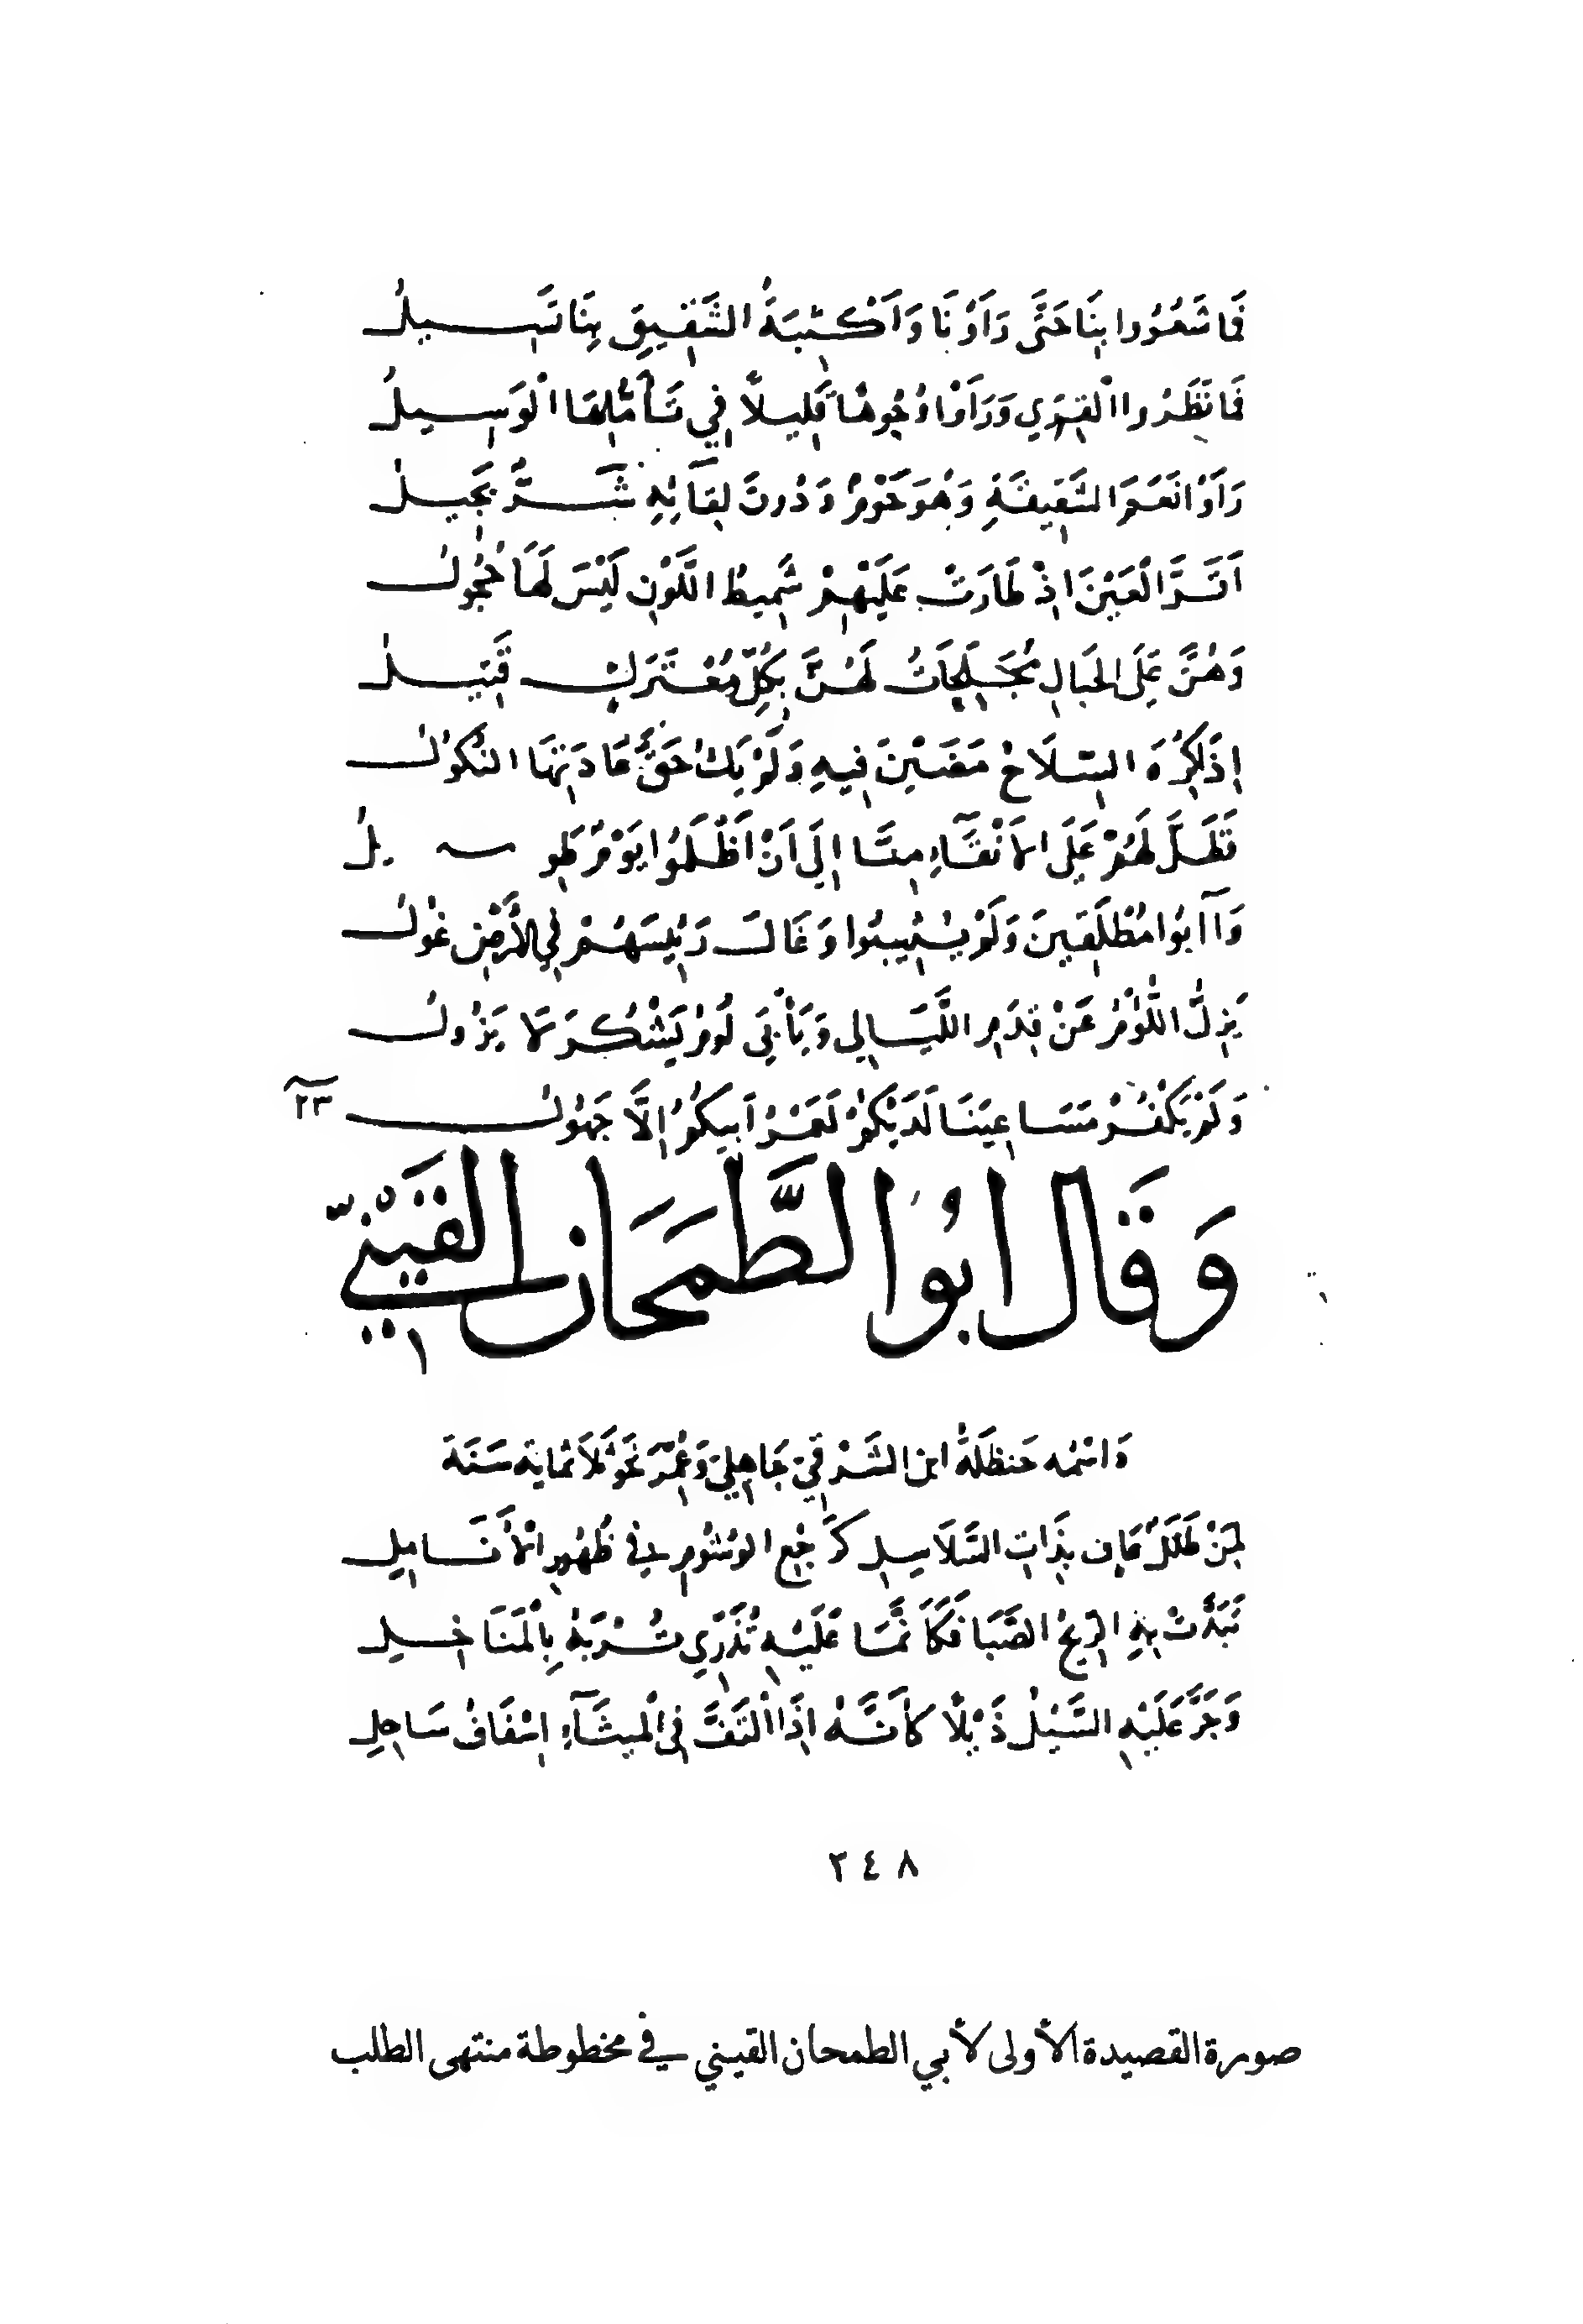 فَمَا شَعُرُوا بِنَا حَتَّى رَأَوْنَا وَأَكْثِبَةُ الشَّقِيقِ بِنَا تَسِيلُ
فَمَا نَظَرُوا الْقِرَى وَرَأَوْا وُجُوهًا قَلِيلًا فِي تَأَمُّلِهَا الْوَسِيلُ
رَأَوْا نَعَمَ الشَّقِيقَةِ وَهْوَ حَوْمٌ وَدُونَ لِقَائِهِ شَرٌّ بَجِيلُ
أَتَرَّ الْعَيْنَ إِذْ طَارَتْ عَلَيْهِمْ شَمِيطُ اللَّوْنِ لَيْسَ لَهَا حُجُولُ
وَهُنَّ عَلَى الْحِبَالِ مُجَلِّحَاتٌ لَهُنَّ بِكُلِّ مُعْتَرَكٍ قَتِيلُ
إِذَا كُرِهَ السِّلَاحُ مَضَيْنَ فِيهِ وَلَمْ يَكُ حَقَّ عَادَتِهَا النُّكُولُ
فَظَلَّ لَهُمْ عَلَى الْأَنْقَاءِ مِنَّا إِلَى أَنْ أَظْلَمُوا يَوْمٌ طَوِيلُ
وَآبُوا مُطْلَقِينَ وَلَمْ يُثِيبُوا وَغَالَتْ رَئِيسَهُمْ فِي الْأَرْضِ غُولُ
يَزِلُّ اللُّؤْمُ عَنْ قِدَمِ اللَّيَالِي وَيَأْبَى لُومُ يَشْكُرَ لَا يَزُولُ
وَلَمْ يَكْفُرْ مَسَاعِيَنَا لَدَيْكُمْ لَعَمْرُ أَبِيكُمُ إِلَّا جَهُولُ ٢٣
وَقَالَ أَبُوا الطَّمَحَانِ القَيْنِيّ
وَاسْمُهُ حَنظَلَةُ ابن الشَّرْقِيّ جَاهِلِيّ وَعُمِّرَ نَحْوَ ثَلَاثمَايَة سَنَة
لِمَنْ طَلَلٌ عَافٍ بِذَاتِ السَّلَاسِلِ كَرَجْعِ الْوُشُومِ فِي ظُهُورِ الْأَنَامِلِ
تَبَدَّتْ بِهِ الرِّيحُ الصَّبَا فَكَأَنَّمَا عَلَيْهِ تُذَرِّي تُرْبَهُ بِالْمَنَاخِلِ
وَجَرَّ عَلَيْهِ السَّيْلُ ذَيْلًا كَأَنَّهُ إِذَا الْتَفَّ فِي الْمَيْثَاءِ إِسْفَافُ سَاحِلِ
٢٤٨
صورة القصيدة الأولى لأبي الطمحان القيني في مخطوطة منتهى الطلب